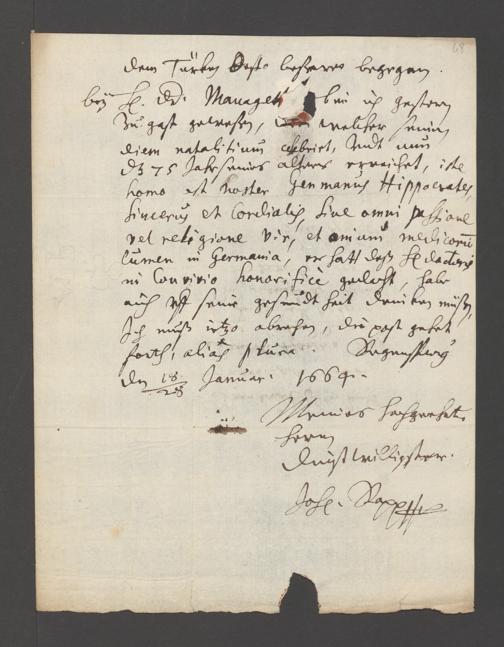 68
dem Türken desto besseres begegnen.
bey H. Dd. Managetta bin ich gestern
zu gast gewesen, welcher seinen
diem natalitium celebriert, undt nun
75 Jahr seines alters erreichet, iste
homo est noster Germanus Hippocrates,
sincerus et Cordialis, sine omni passione
vel religione vir, et omnium medicorum
lumen in Germania, er hatt deß H. doctoris
in Convivio honorificè gedacht, habe
auch vff seine gesundtheit drincken müßen,
Ich muß ietzo abrechen, die post gehet
forth, alias plura. Regenspurg
den 18/28 Januar. 1664.
Meines hochgeehrt.
Herrn
Dienstwilligster.
Joh.